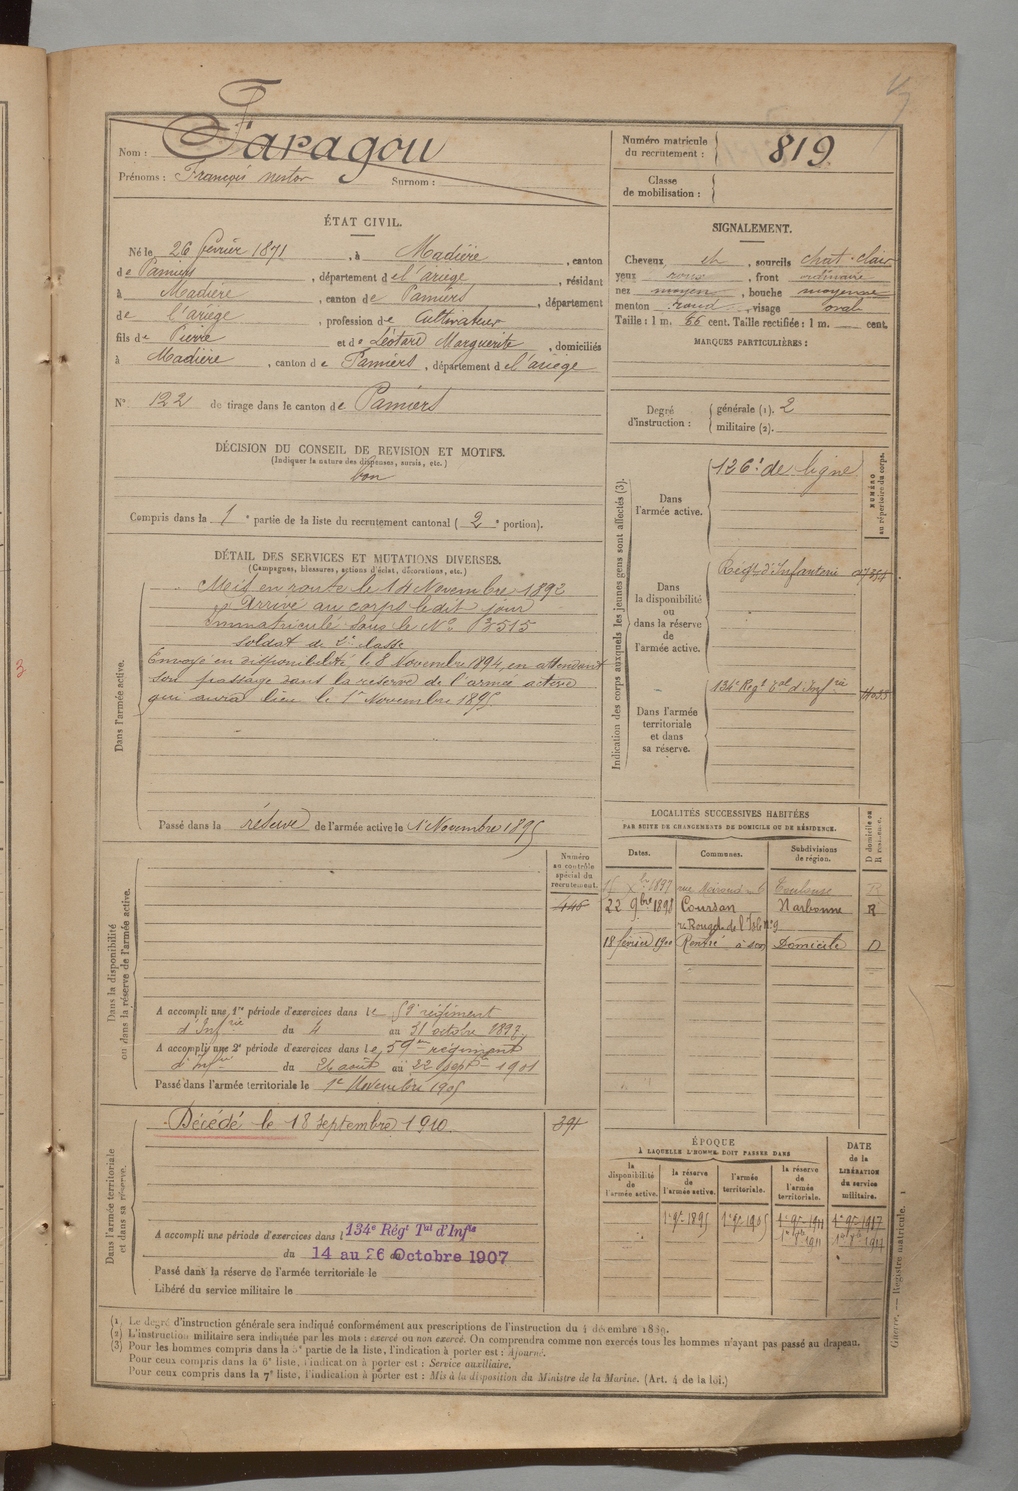 Nom : Faragou
Prénoms : François nestor Surnom :
Numéro matricule du recrutement : 819
Classe de mobilisation :
ÉTAT CIVIL.
Né le 26 février 1871, à Madière, canton
de Pamiers, département de l'ariège, résidant
à Madière, canton de Pamiers, département
de l'ariège, profession de Cultivateur
fils de Pierre et de Léotard Marguerite, domiciliés
à Madière, canton de Pamiers, département de l'ariège
N° 122 de tirage dans le canton de Pamiers
DÉCISION DU CONSEIL DE REVISION ET MOTIFS.
(Indiquer la nature des dispenses, sursis, etc.)
bon
Compris dans la 1e partie de la liste du recrutement cantonal (2e portion).
DÉTAIL DES SERVICES ET MUTATIONS DIVERSES.
(Campagnes, blessures, actions d'éclat, décorations, etc.)
Dans l'armée active.
Mis en route le 14 Novembre 1892
Arrivé au corps ledit jour
Immatriculé sous le N° 3515
soldat de 2e classe
Envoyé en disponibilité le 8 Novembre 1894, en attendant
son passage dans la réserve de l'armée active
qui aura lieu le 1er Novembre 1895
Passé dans la réserve de l'armée active le 1er Novembre 1895
Dans la disponibilité ou dans la réserve de l'armée active.
Numéro au contrôle spécial du recrutement.
A accompli une 1re période d'exercices dans le 59e régiment
d'Infrie du 4 au 31 octobre 1897
A accompli une 2e période d'exercices dans le 59me régiment
d'Infrie du 26 août au 22 septre 1901
Passé dans l'armée territoriale le 1er Novembre 1905
Dans l'armée territoriale et dans sa réserve.
Décédé le 18 septembre 1910.
391
A accompli une période d'exercices dans l 134e Régt Tal d'Infie
du 14 au 26 Octobre 1907
Passé dans la réserve de l'armée territoriale le
Libéré du service militaire le
SIGNALEMENT.
Cheveux ch, sourcils chat-clair
yeux roux, front ordinaire
nez moyen, bouche moyenne
menton rond, visage ovale
Taille : 1 m. 66 cent. Taille rectifiée : 1 m. cent.
MARQUES PARTICULIÈRES :
Degré d'instruction : générale (1). 2
militaire (2).
Indication des corps auxquels les jeunes gens sont affectés (3).
NUMÉRO au répertoire du corps.
Dans l'armée active. 126e de ligne
Dans la disponibilité ou dans la réserve de l'armée active. Régt d'Infanterie
Dans l'armée territoriale et dans sa réserve. 134e Régt Tal d'Infrie
LOCALITÉS SUCCESSIVES HABITÉES
PAR SUITE DE CHANGEMENTS DE DOMICILE OU DE RÉSIDENCE.
D domicile ou R résidence.
Dates. Communes. Subdivisions de région.
Xbre 1897 Toulouse R
22 9bre 1898 Coursan Narbonne R
18 février 1900 Rentré à son Domicile D
ÉPOQUE
À LAQUELLE L'HOMME DOIT PASSER DANS
la disponibilité de l'armée active. la réserve de l'armée active. l'armée territoriale. la réserve de l'armée territoriale. DATE de la LIBÉRATION du service militaire.
1er 9bre 1895 1er 9bre 1905 1er 9bre 1911 1er 9bre 1917
(1) Le degré d'instruction générale sera indiqué conformément aux prescriptions de l'instruction du 4 décembre 1889.
(2) L'instruction militaire sera indiquée par les mots : exercé ou non exercé. On comprendra comme non exercés tous les hommes n'ayant pas passé au drapeau.
(3) Pour les hommes compris dans la 5e partie de la liste, l'indication à porter est : Ajourné.
Pour ceux compris dans la 6e liste, l'indication à porter est : Service auxiliaire.
Pour ceux compris dans la 7e liste, l'indication à porter est : Mis à la disposition du Ministre de la Marine. (Art. 4 de la loi.)
Guerre. — Registre matricule. 1